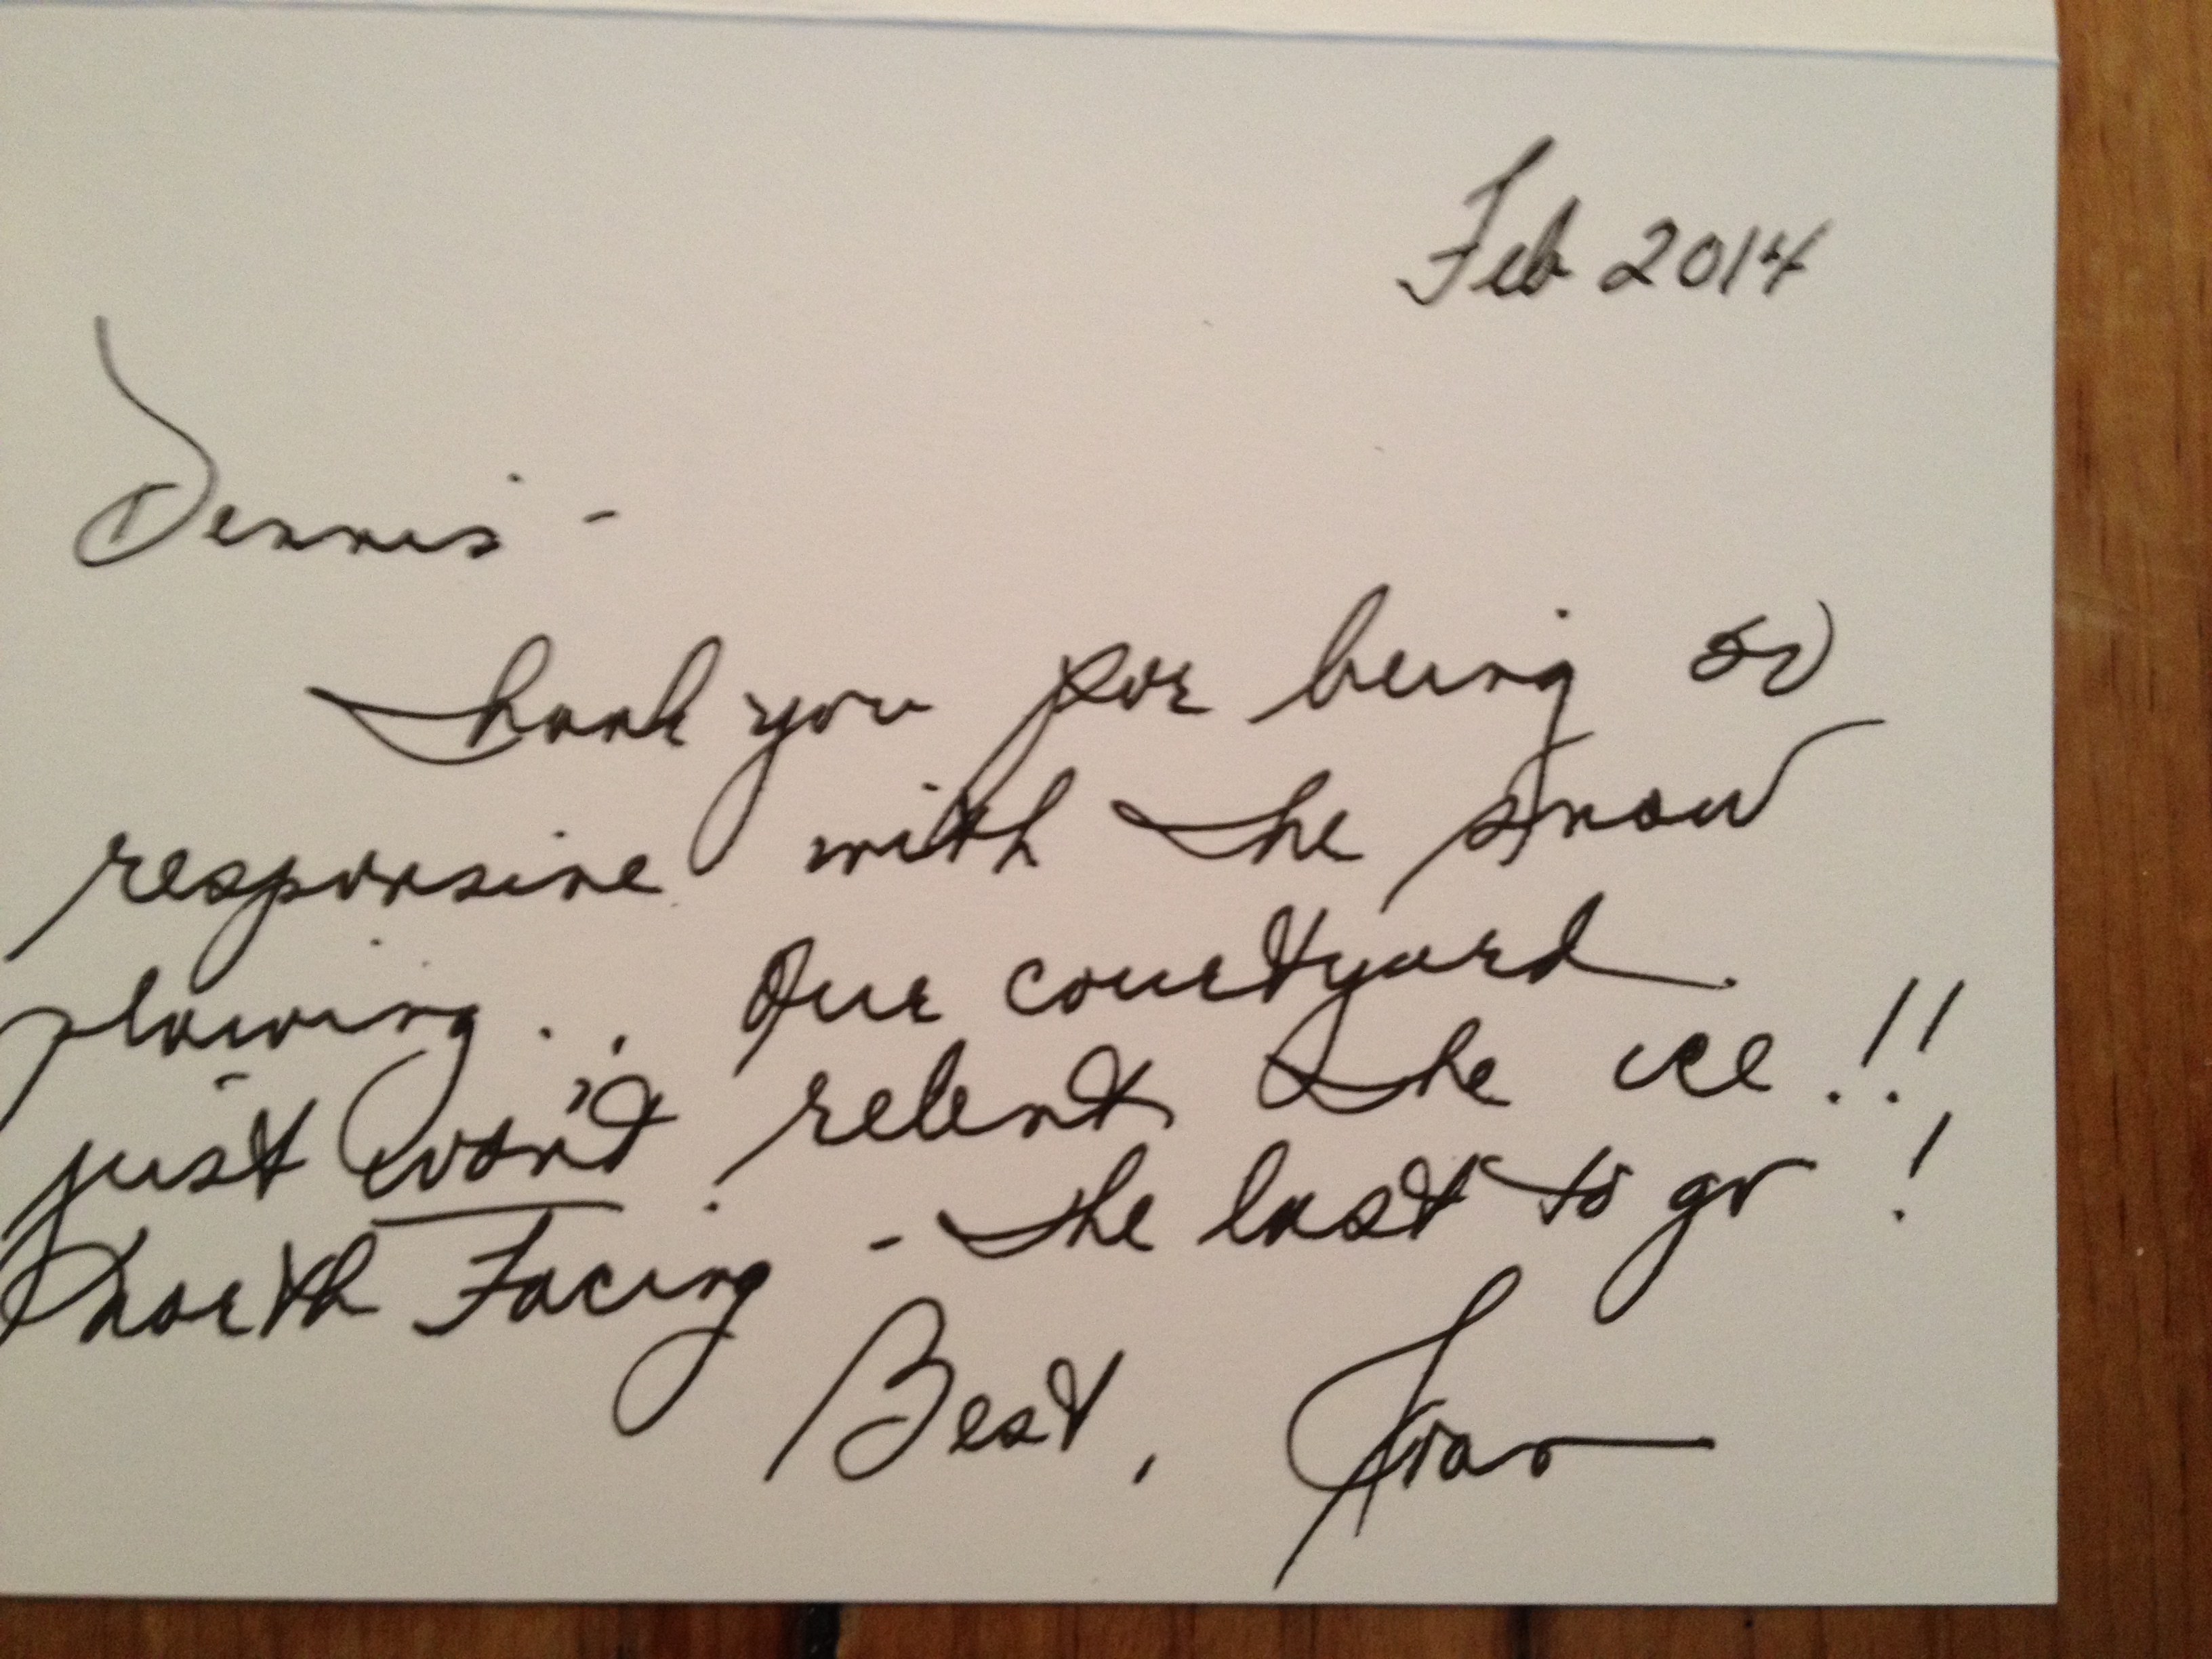 Feb 2014
Dennis -
thank you for being so
responsive with the snow
plowing... Our courtyard
just won't relent the ice!!
North Facing - the last to go!
Best, Fran